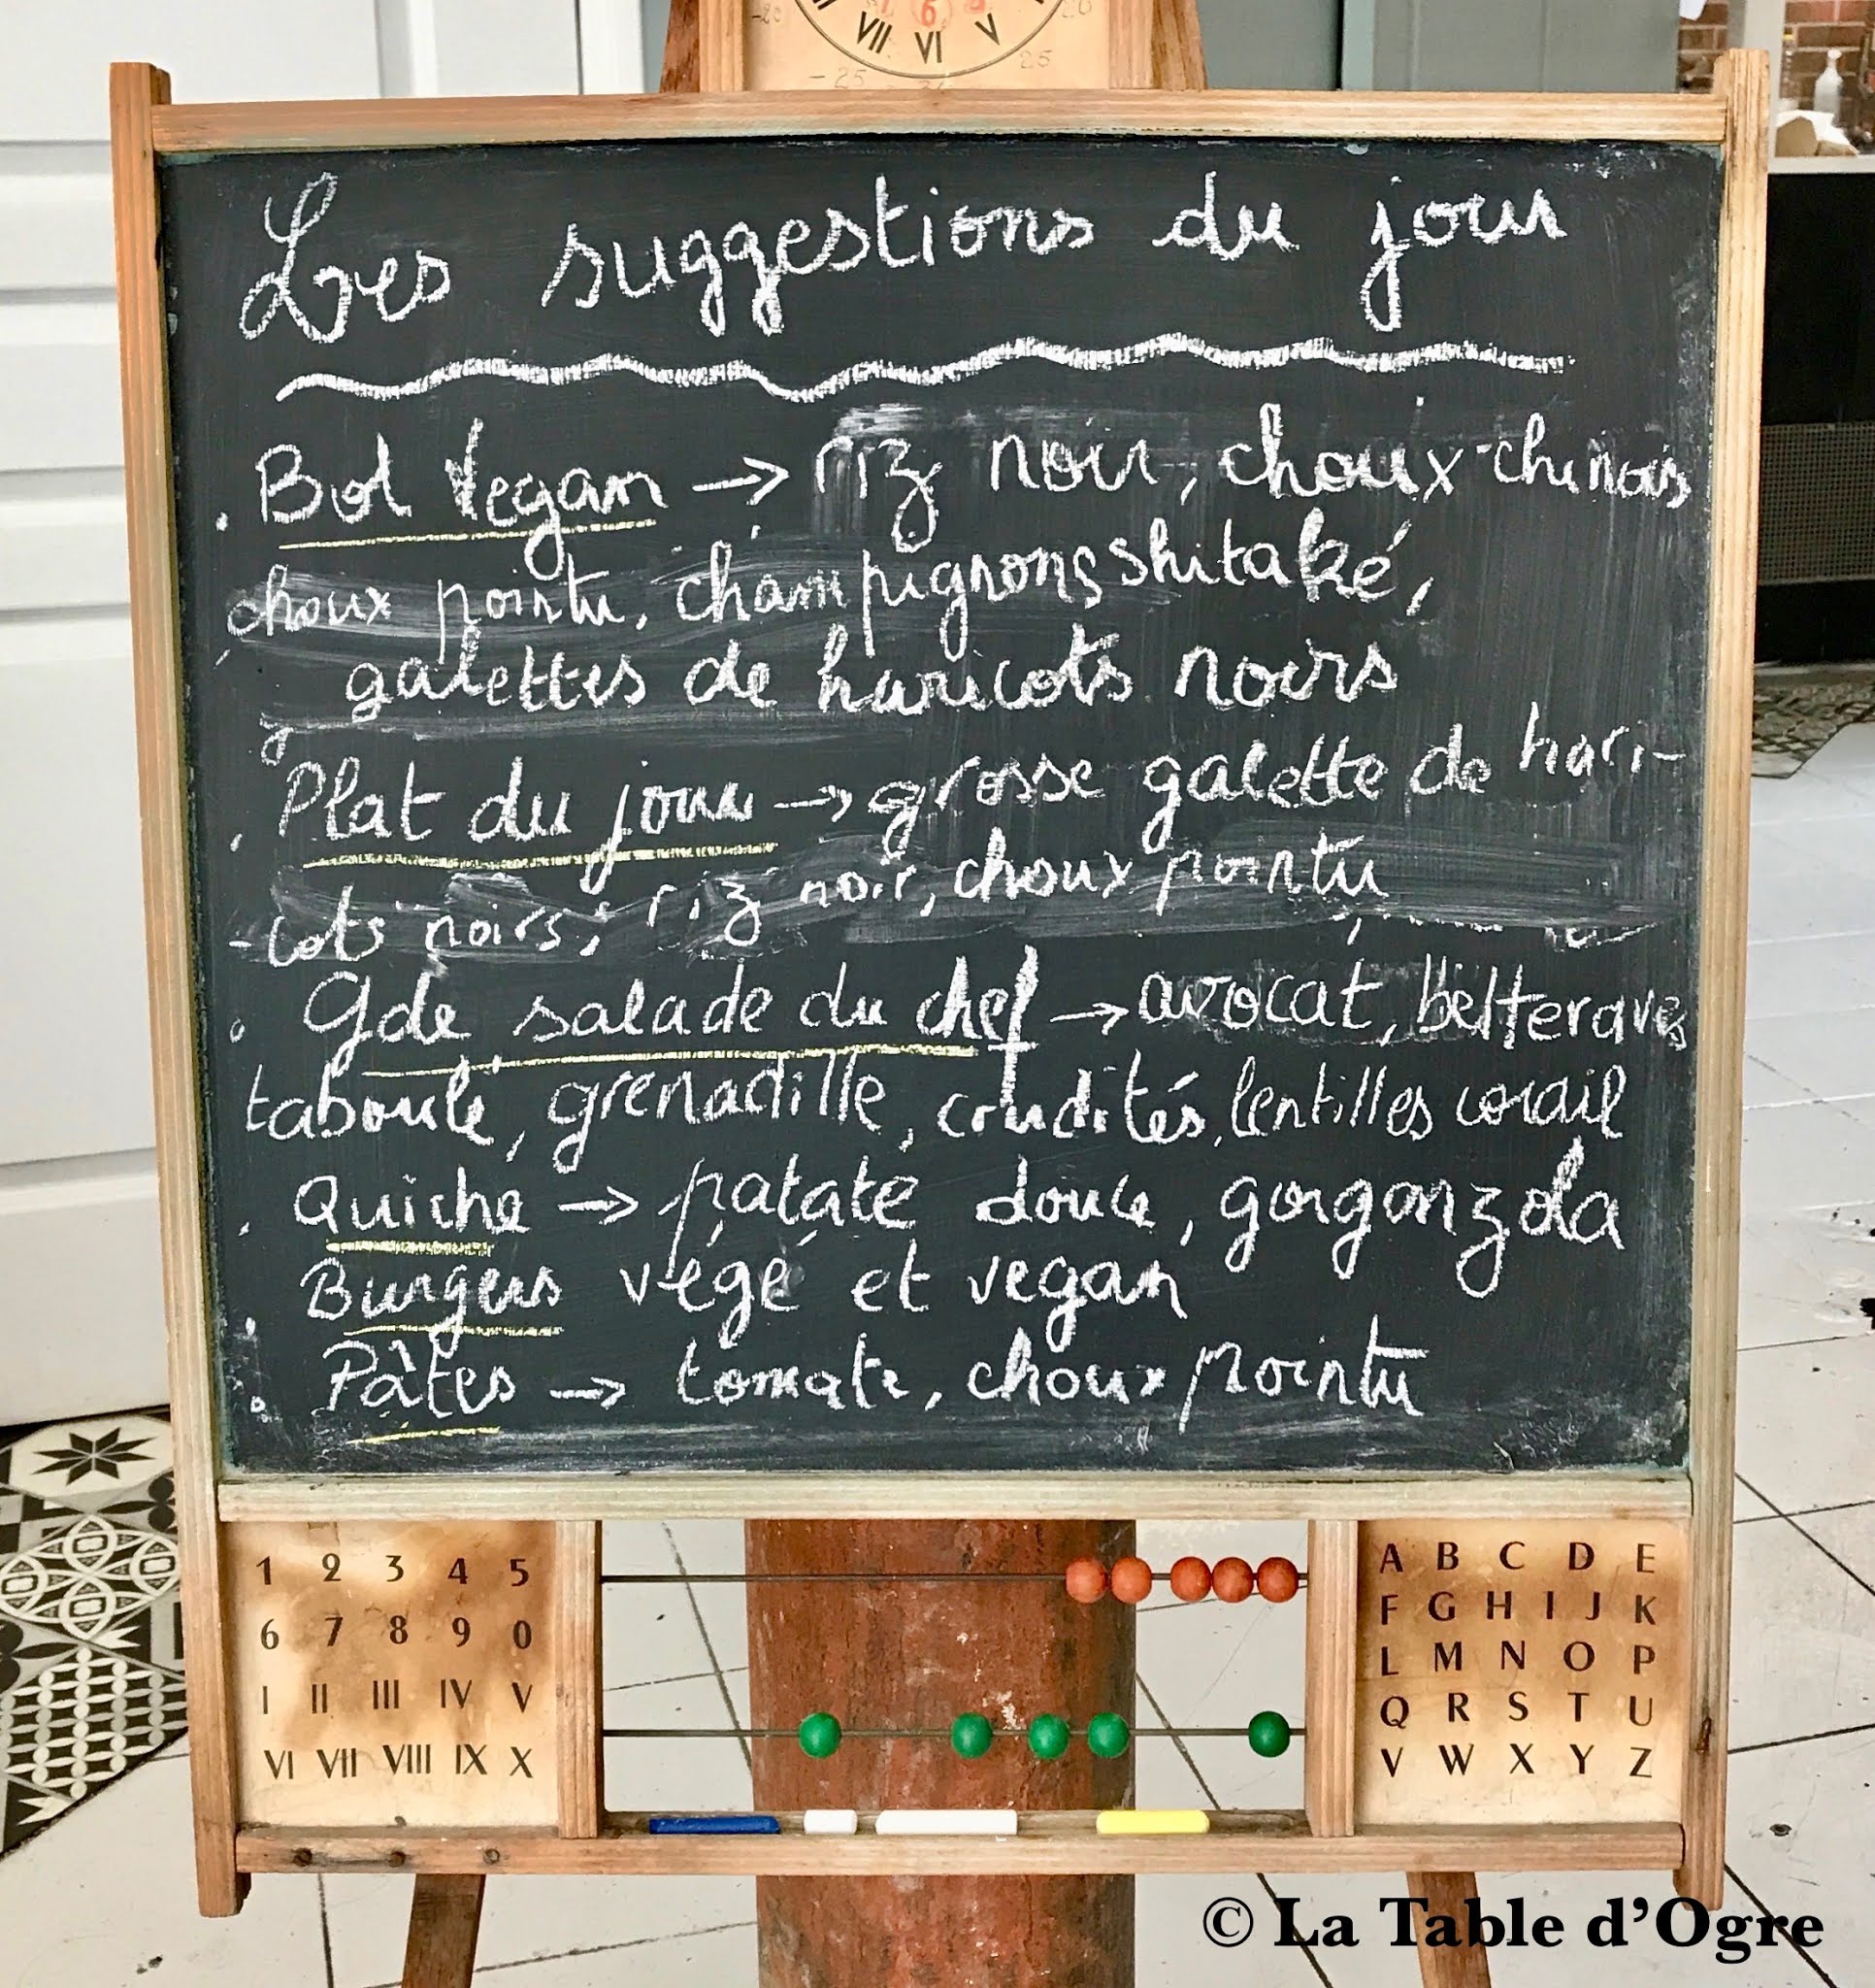 VII VI V
7 6 5
-20 20
-25 25
Les suggestions du jour
. Bol Vegan → riz noir, choux-chinois
choux pointu, champignons shitaké,
galettes de haricots noirs
. Plat du jour → grosse galette de hari-
-cots noirs, riz noir, choux pointu
. Gde salade du chef → avocat, betteraves
taboulé, grenadille, crudités, lentilles corail
. Quiche → patate douce, gorgonzola
. Burgers végé et vegan
. Pâtes → tomate, choux pointu
1 2 3 4 5
6 7 8 9 0
I II III IV V
VI VII VIII IX X
A B C D E
F G H I J K
L M N O P
Q R S T U
V W X Y Z
© La Table d'Ogre